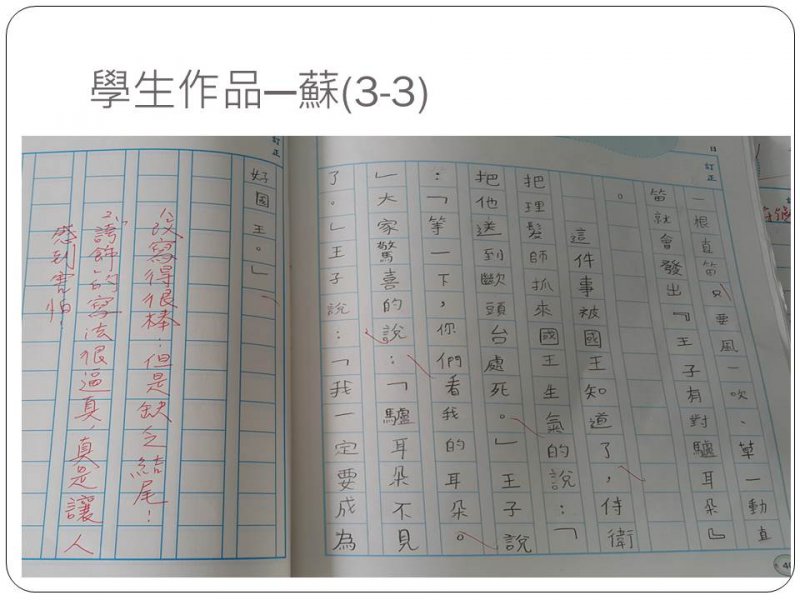 學生作品─蘇(3-3)
日 訂正
一根直笛只要風一吹、草一動直
笛就會發出『王子有對驢耳朵』
。
這件事被國王知道了，侍衛
把理髮師抓來國王生氣的說：「
把他送到斷頭台處死。」王子說
：「等一下，你們看我的耳朵。
」大家驚喜的說：「驢耳朵不見
了。」王子說：「我一定要成為
訂正
好國王。」
1.改寫得很棒…但是缺乏結尾！
2.「誇飾」的寫法很逼真，真是讓人
感到害怕！